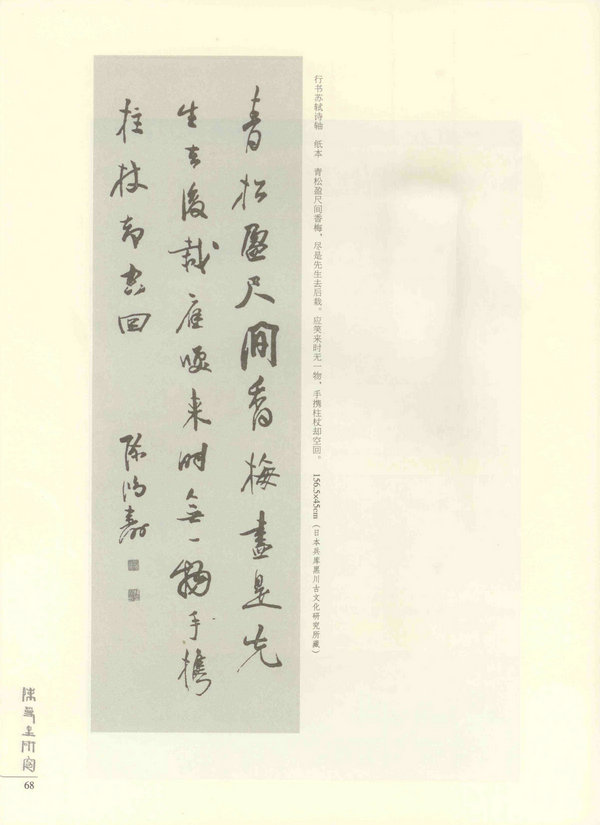 青松盈尺間香梅盡是先
生去後栽應咲来時無一物手攜
柱杖却空回
陈鸿壽
行书苏轼诗轴　纸本　青松盈尺间香梅，尽是先生去后栽。应笑来时无一物，手携柱杖却空回。　156.5×45cm（日本兵库黑川古文化研究所藏）
68